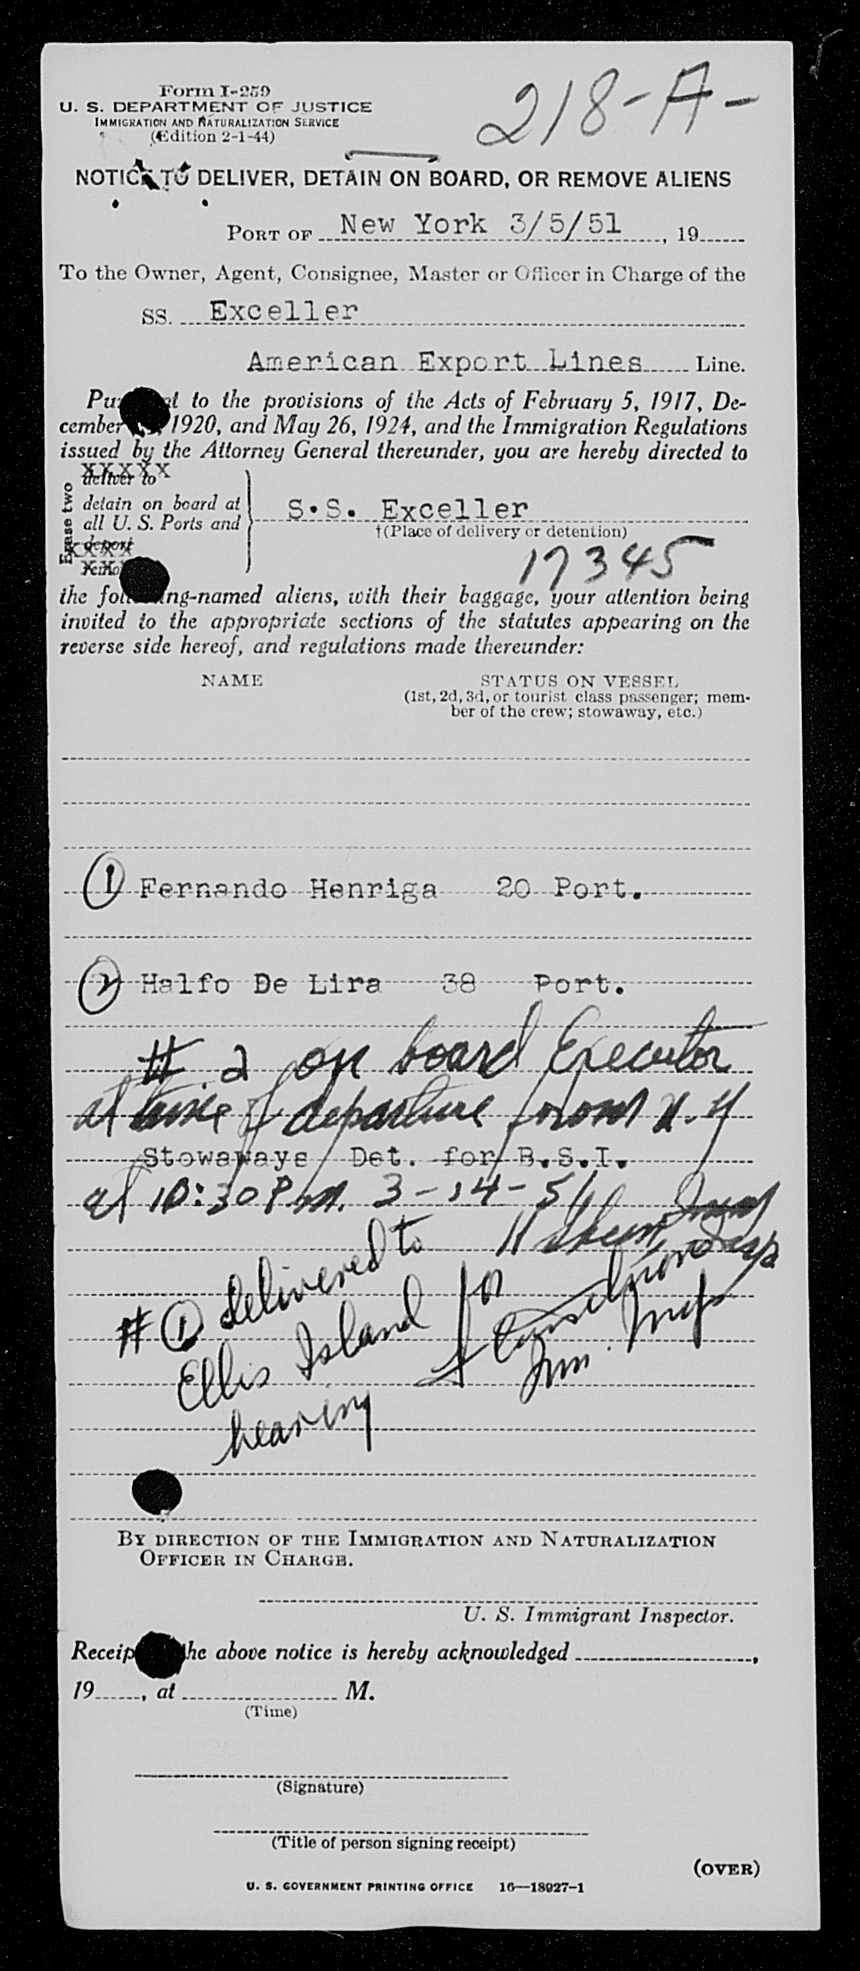 Form I-259
218-A-
U. S. DEPARTMENT OF JUSTICE
IMMIGRATION AND NATURALIZATION SERVICE
(Edition 2-1-44)
NOTICE TO DELIVER, DETAIN ON BOARD, OR REMOVE ALIENS
PORT OF New York 3/5/51, 19
To the Owner, Agent, Consignee, Master or Officer in Charge of the
SS. Exceller
American Export Lines Line.
to the provisions of the Acts of February 5, 1917, De-
cember 1920, and May 26, 1924, and the Immigration Regulations
issued by the Attorney General thereunder, you are hereby directed to
Erase two
deliver to
detain on board at
all U. S. Ports and
deport
S.S. Exceller
†(Place of delivery or detention)
17345
the following-named aliens, with their baggage, your attention being
invited to the appropriate sections of the statutes appearing on the
reverse side hereof, and regulations made thereunder:
NAME STATUS ON VESSEL
(1st, 2d, 3d, or tourist class passenger; mem-
ber of the crew; stowaway, etc.)
1 Fernando Henriga 20 Port.
2 Halfo De Lira 38 Port.
# 2 on board Executor
at time of departure from N.Y
Stowaways Det. for B.S.I.
at 10:30 P.m. 3-14-51
# 1 delivered to
Ellis Island for
hearing
BY DIRECTION OF THE IMMIGRATION AND NATURALIZATION
OFFICER IN CHARGE.
U. S. Immigrant Inspector.
Receipt the above notice is hereby acknowledged ,
19 , at M.
(Time)
(Signature)
(Title of person signing receipt)
(OVER)
U. S. GOVERNMENT PRINTING OFFICE 16—18927-1